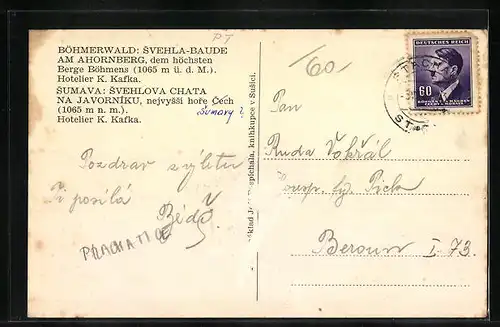 PT
BÖHMERWALD: ŠVEHLA-BAUDE
AM AHORNBERG, dem höchsten
Berge Böhmens (1065 m ü. d. M.).
Hotelier K. Kafka.
ŠUMAVA: ŠVEHLOVA CHATA
NA JAVORNÍKU, nejvyšší hoře Čech
(1065 m n. m.).
Hotelier K. Kafka.
Šumavy ?
Pozdrav z výletu
Ti posílá
PRACHATICE
knihkupce v Sušici.
60
DEUTSCHES REICH
60
BÖHMEN U. MÄHREN
Pan
Ruda
Beroun I 73.